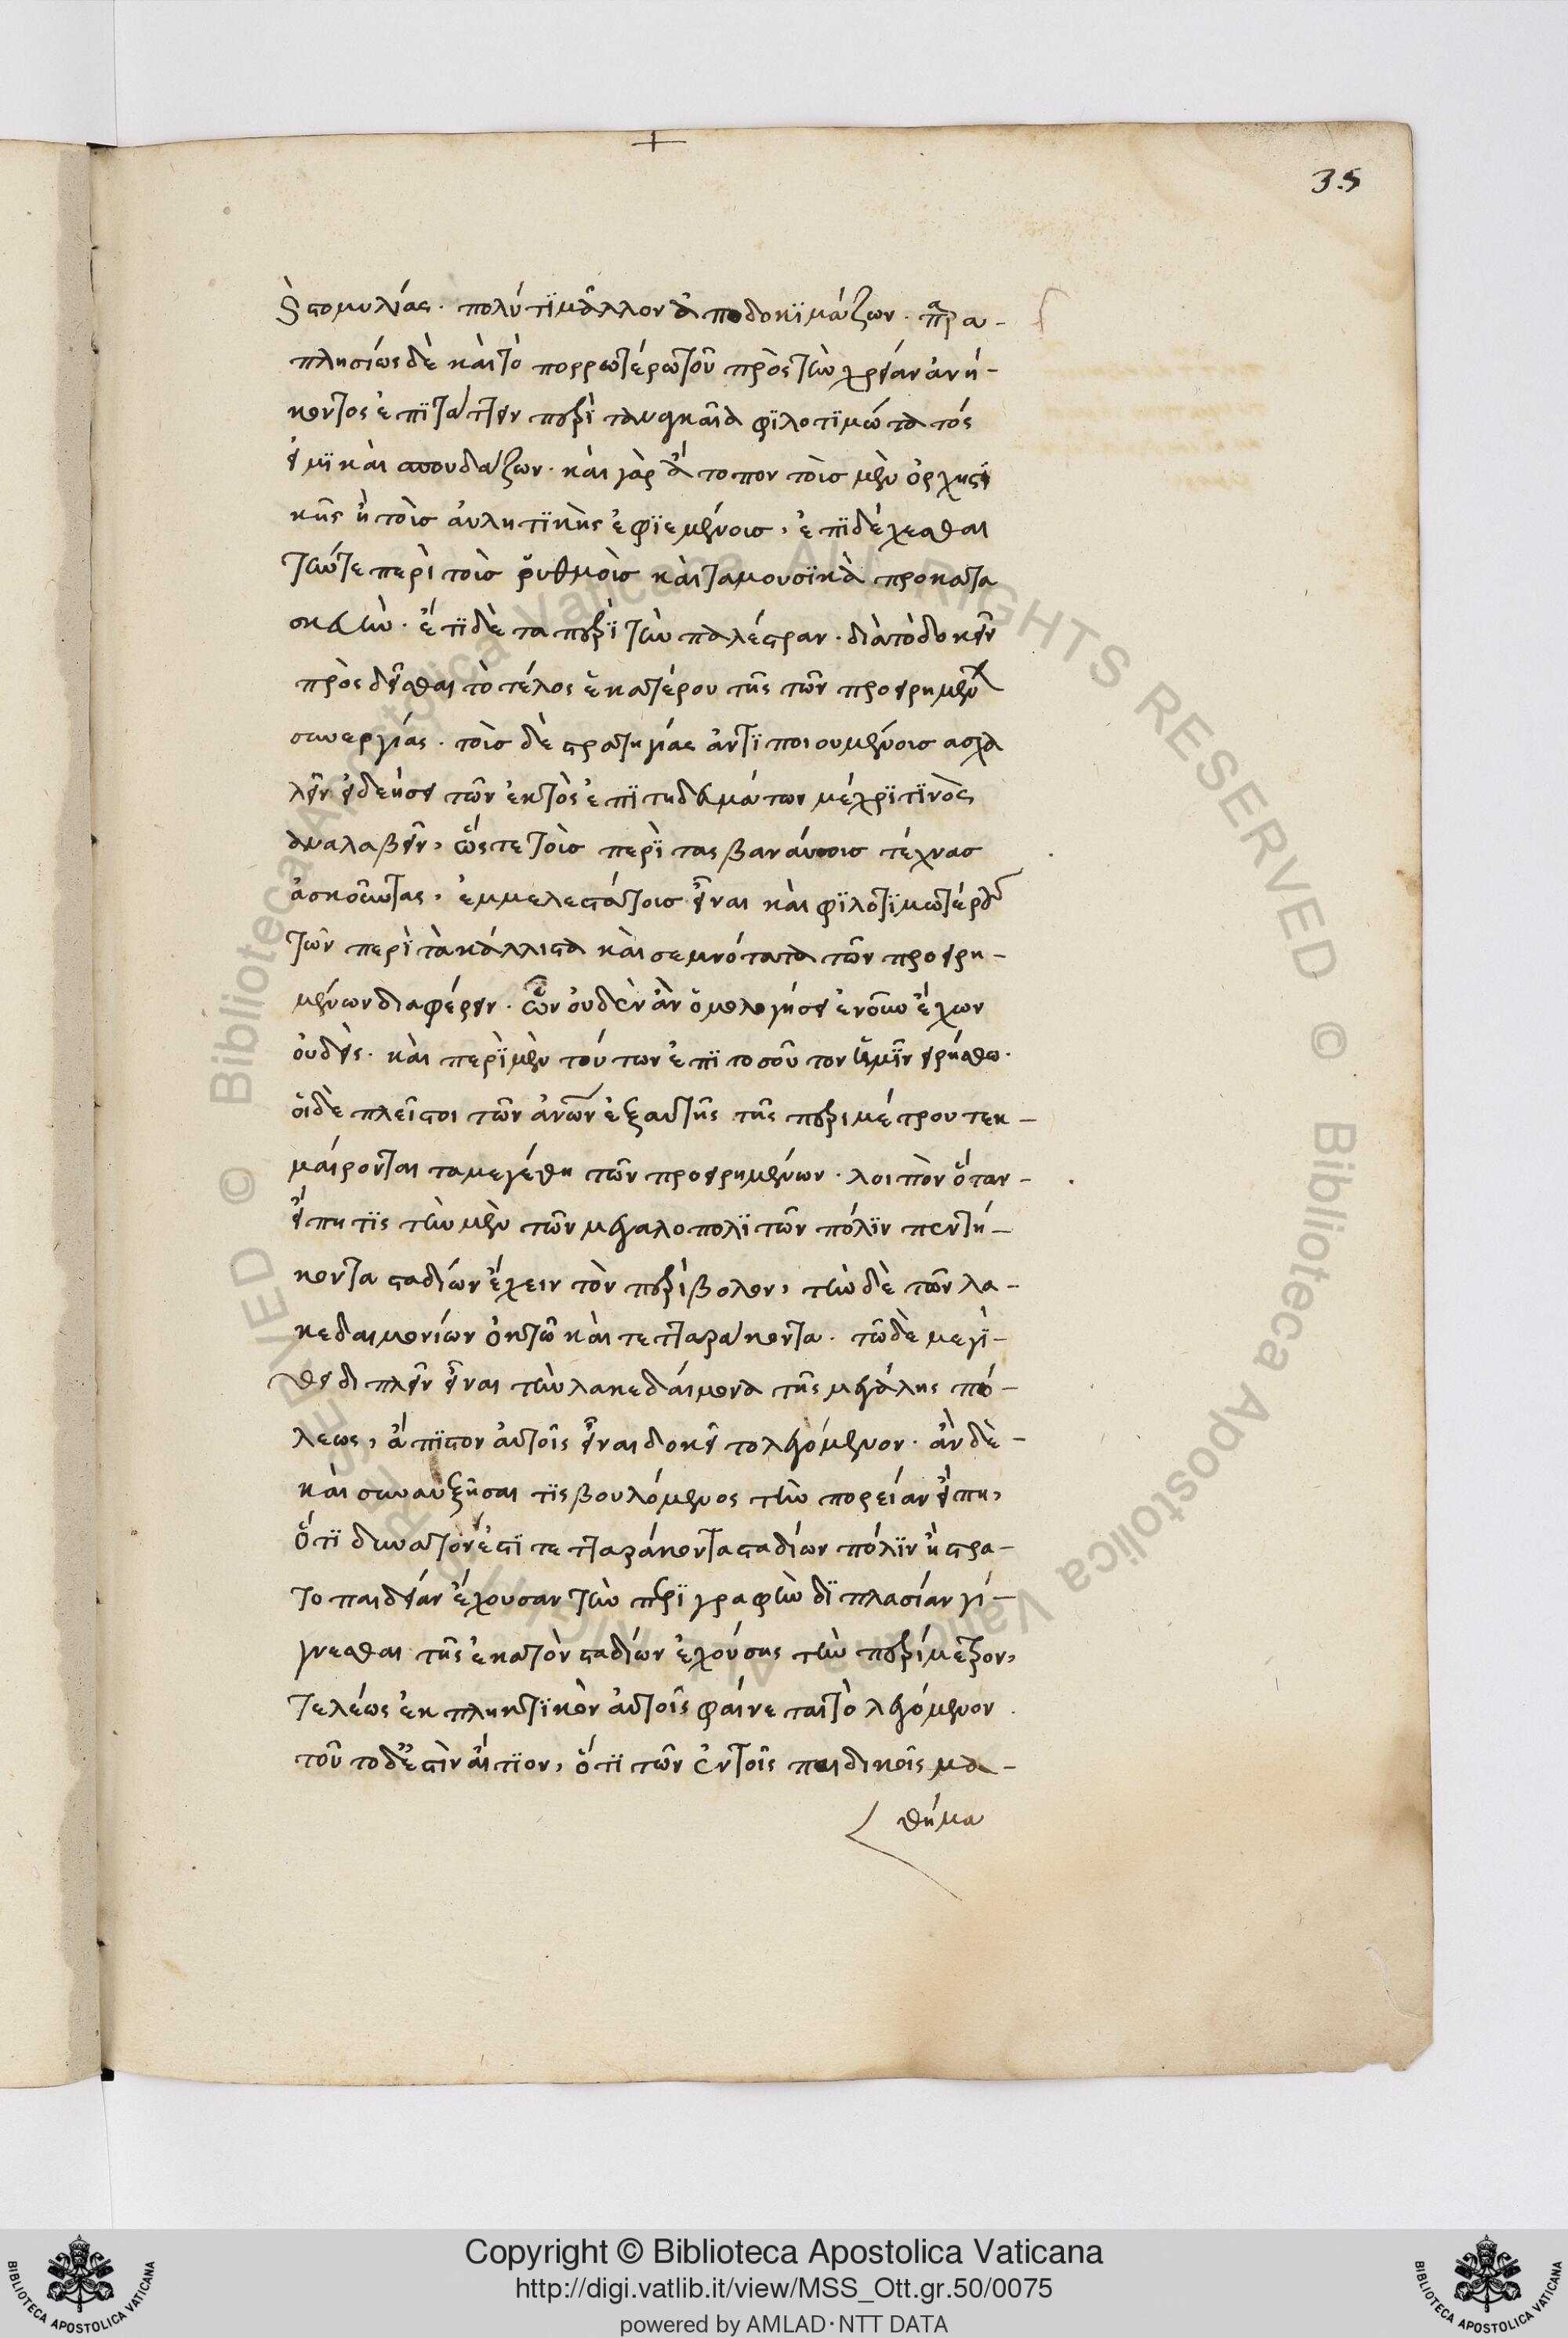 35
στομυλίας. πολύ τϊ μᾶλλον ἀποδοκϊμάζων. παρα-
πλησίως δὲ καὶ τὸ πορρωτέρω τοῦ πρὸς τὴν χρείαν ἀνή-
κοντος ἐπϊτάττειν περὶ τἀναγκαῖα φϊλοτϊμώτατός
εἰμϊ καὶ σπουδάζων. καὶ γὰρ ἄτοπον τοῖσ μὲν ὀρχηστϊ
κῆς ἢ τοῖσ ἀυλητϊκῆς ἐφϊεμένοισ, ἐπϊδέχεσθαι
τήν τε περὶ τοὶσ ῥυθμοὶσ καὶ τα μουσϊκὰ προκατα
σκευὴν. ἔτϊ δὲ τα περὶ τὴν παλέστραν. διὰ τὸ δοκεῖν
πρὸς δεῖσθαι τὸ τέλος ἑκατέρου τῆς τῶν προειρημένων
συνεργίας. τοῖσ δὲ στρατηγίας ἀντϊποιουμένοισ ασχα
λεῖν εἰ δεήσει τῶν ἐκτὸς ἐπϊτηδευμάτων μέχρϊ τϊνὸς
ἀναλαβεῖν, ὥς τε τοὶσ περὶ τας βαναύσοισ τέχνασ
ἀσκοῦντας, ἐμμελεστάτοισ εἶναι καὶ φϊλοτϊμωτέρους
τῶν περὶ τὰ κάλλιστα καὶ σεμνότατα τῶν προειρη-
μένων διαφέρειν. ὧν ὀυδὲν ἂν ὁμολογήσει ἐνοῦν ἔχων
ὀυδεὶς. καὶ περὶ μὲν τούτων ἐπϊ τοσοῦτον ἡμῖν εἰρήσθω.
ὁι δὲ πλεῖστοι τῶν ἀνων ἐξ αυτῆς τῆς περιμέτρου τεκ-
μαίρονται τα μεγέθη τῶν προειρημένων. λοιπὸν ὅταν-
εἴπη τϊς τὴν μὲν τῶν μεγαλοπολϊτῶν πόλϊν πεντή-
κοντα σταδίων ἔχειν τὸν περίβολον, τὴν δὲ τῶν λα-
κεδαιμονίων ὀκτῶ καὶ τετταράκοντα. τῶ δὲ μεγέ-
θει διπλεῖν εἶναι τὴν λακεδάιμονα τῆς μεγάλης πό-
λεως, ἄπϊστον ἀυτοῖς εἶναι δοκεῖ το λεγόμενον. ἂν δὲ-
καὶ συναυξῆσαι τϊς βουλόμενος τὴν πορείαν εἴπη,
ὅτϊ δυνατόν ἐστϊ τετταράκοντα σταδίων πόλϊν ἢ στρα-
τοπαιδείαν ἔχουσαν τὴν περϊγραφὴν δϊπλασίαν γί-
γνεσθαι τῆς ἑκατὸν σταδίων ἐχούσης τὴν περίμετρον,
τελέως ἐκπληκτϊκὸν ἀυτοῖς φαίνεται τὸ λεγόμενον
τοῦτο δ' ἔστὶν ἄιτϊον, ὅτϊ τῶν ἐν τοῖς παιδικοῖς μα-
θήμα
Copyright © Biblioteca Apostolica Vaticana
http://digi.vatlib.it/view/MSS_Ott.gr.50/0075
powered by AMLAD·NTT DATA